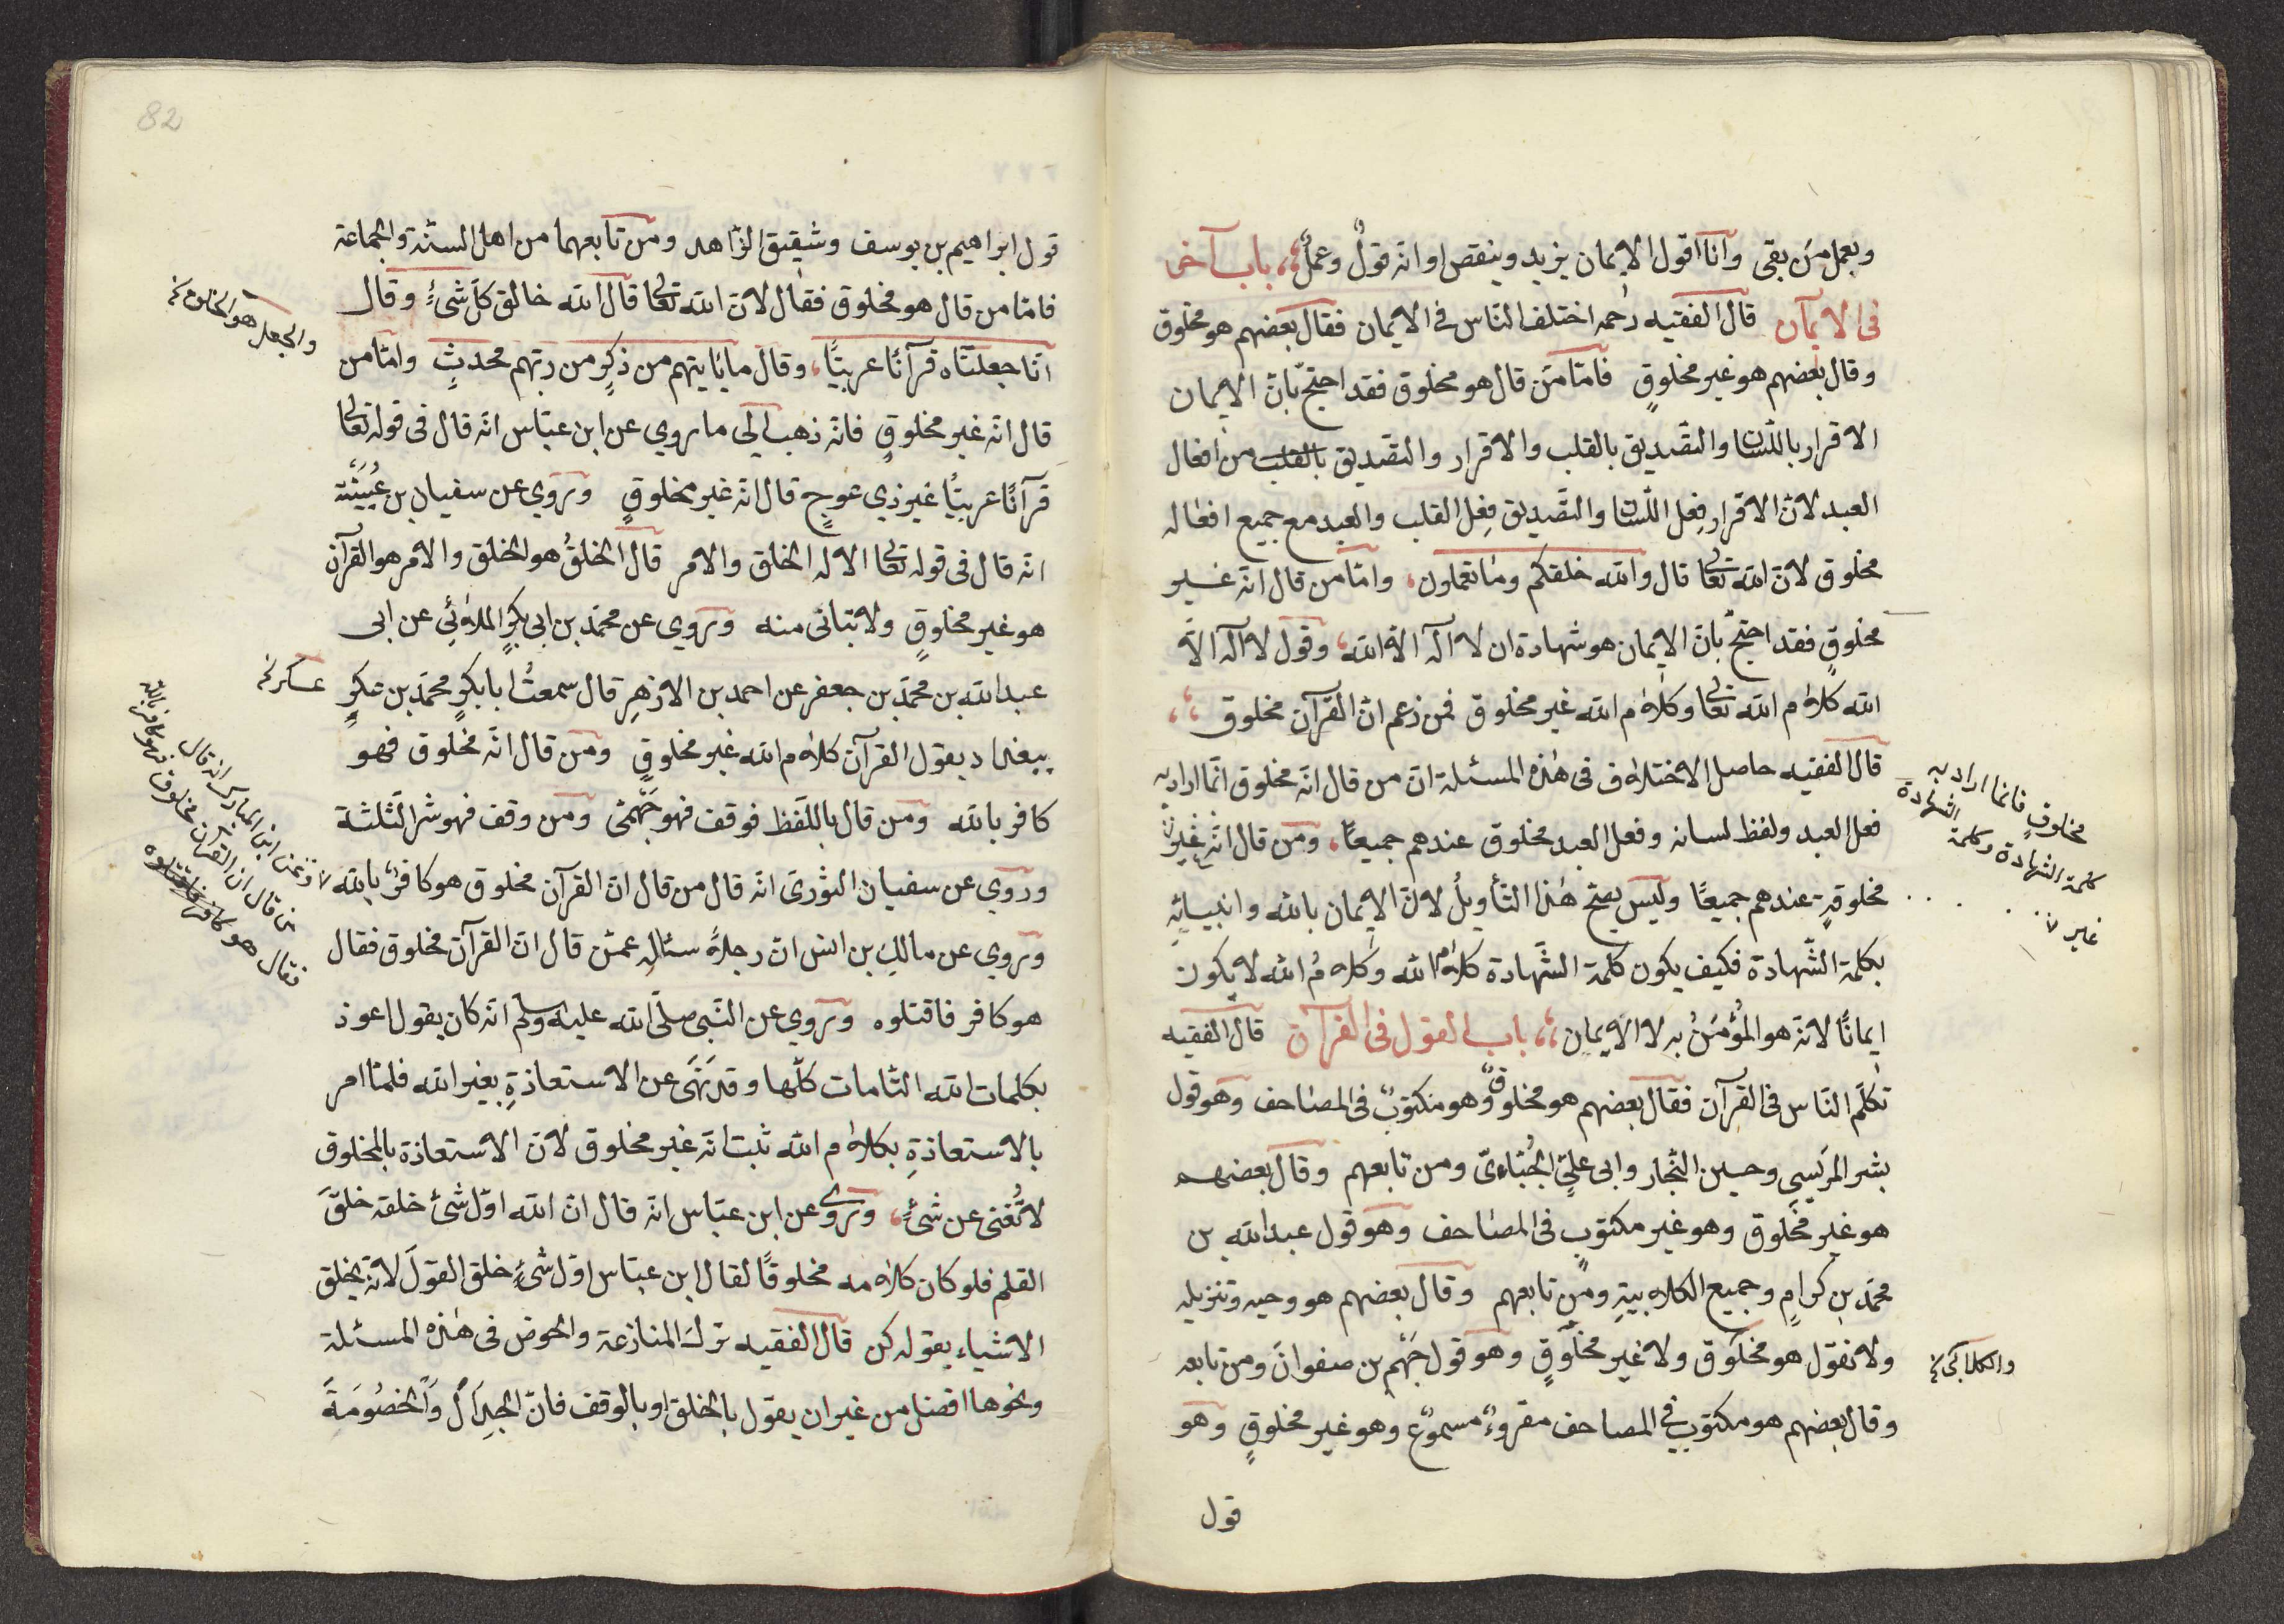 وبعمل من بقى وانا اقول الايمان يزيد وينقص او انه قولٌ وعملٌ، باب آخر
فى الايمان قال الفقيه رحمه اختلف الناس فى الايمان فقال بعضهم هو مخلوق
وقال بعضهم هو غير مخلوقٍ فامّا من قال هو مخلوق فقد احتجّ بانّ الايمان
الاقرار باللّسان والتّصديق بالقلب والاقرار والتّصديق بالقلب من افعال
العبد لانّ الاقرار فِعل اللّسان والتّصديق فِعل القلب والعبد مع جميع افعاله
مخلوق لانّ الله تعالى قال والله خلقكم وما تعملون، وامّا من قال انّه غير
مخلوقٍ فقد احتجّ بانّ الايمان هو شهادة ان لا اله الّا الله، وقول لا اله الّا
الله كلام الله تعالى وكلام الله غير مخلوق فمن زعم انّ القرآن مخلوق،
قال الفقيه حاصل الاختلاف فى هذه المسئلة انّ من قال انّه مخلوق انّما اراد به
فعل العبد ولفظ لسانه وفعل العبد مخلوق عندهم جميعًا، ومن قال انّه غير
مخلوقةٍ عندهم جميعًا وليس يصحّ هذا التأويلُ لانّ الايمان بالله وانبيائهِ
بكلمة الشّهادة فكيف يكون كلمة الشّهادة كلامُ الله وكلامُ الله لا يكون
ايمانًا لانّه هو المؤمَنُ به لا الايمان، باب القول فى القرآن قال الفقيه
تكلّم النّاس فى القرآن فقال بعضهم هو مخلوقٌ وهو مكتوبٌ فى المصاحف وهو قول
بشر المريسى وحسين النجّار وابى علىٍّ الجُبّاءىّ ومن تابعهم وقال بعضهم
هو غير مخلوق وهو غير مكتوبٍ فى المصاحف وهو قول عبدالله بن
محمّد بن كرامٍ وجميع الكلابيةِ ومن تابعهم وقال بعضهم هو وحيه وتنزيله
ولا نقول هو مخلوق ولا غير مخلوقٍ وهو قول جَهْم بن صفوانَ ومن تابعه
وقال بعضهم هو مكتوب فى المصاحف مقروءٌ مسموعٌ وهو غير مخلوقٍ وهو
قول
مخلوقٍ فانما اراد به
كلمة الشهادة وكلمة
الشهادة
غير
والكلابى
82
قول ابراهيم بن يوسف وشقيق الزّاهد ومن تابعهما من اهل السنّة والجماعة
فامّا من قال هو مخلوق فقال لانّ الله تعالى قال الله خالق كلّ شىءٍ وقال
انّا جعلناه قرآنًا عربيًّا، وقال ما ياتيهم من ذكرٍ من ربّهم محدثٍ وامّا من
قال انّه غير مخلوقٍ فانّه ذهب الى ما روي عن ابن عبّاس انّه قال فى قوله تعالى
قرآنًا عربيًّا غير ذي عوجٍ قال انّه غير مخلوقٍ وروي عن سفيان بن عُيَيْنَة
انّه قال فى قوله تعالى الا له الخلق والامر قال الخلقُ هو الخلق والامر هو القرآن
هو غير مخلوقٍ ولا تباتى منه وروي عن محمّد بن ابى بكرٍ الملائى عن ابى
عبدالله بن محمّد بن جعفر عن احمد بن الازهرِ قال سمعتُ ابا بكرٍ محمّد بن عكرٍ
ببغداد يقول القرآن كلام الله غير مخلوقٍ ومن قال انّه مخلوق فهو
كافر بالله ومن قال باللّفظ فوقف فهو جَهْمىّ ومن وقف فهو شرّ الثّلثة
وروي عن سفيان الثّوريّ انّه قال من قال انّ القرآن مخلوق هو كافرٌ بالله
وروي عن مالكِ بن انس انّ رجلاً سئاله عمّن قال انّ القرآن مخلوق فقال
هو كافر فاقتلوه وروي عن النّبى صلّى الله عليه وسلم انّه كان يقول اعوذ
بكلمات الله التّامات كلّها وقد نَهَى عن الاستعاذةِ بغير الله فلمّا امر
بالاستعاذةِ بكلام الله ثبت انّه غير مخلوق لانّ الاستعاذة بالمخلوق
لا تُغنى عن شىءٍ، وروى عن ابن عبّاس انّه قال انّ الله اوّل شىء خلقه خلقَ
القلم فلو كان كلامه مخلوقًا لقال ابن عبّاس اوّل شىءٍ خلق القولَ لانّه يخلق
الاشياء بقوله كن قال الفقيه ترك المنازعة والخوض فى هذه المسئلة
ونحوها افضل من غير ان يقول بالخلق او بالوقف فانّ الجِدَالَ وَالخصُومَةَ
والجعل هو الخلق
عسكر
وعن ابن المبارك انه قال
من قال ان القرآن مخلوق فهو كافر بالله
فقال هو كافر فاقتلوه